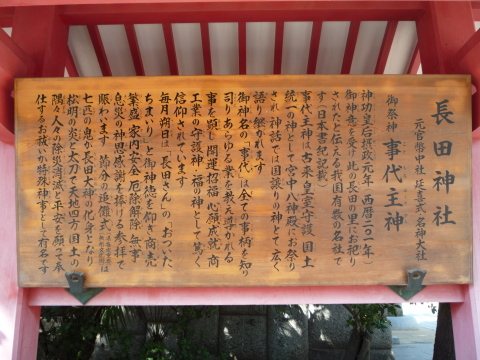 長田神社
元官幣中社 延喜式名神大社
御祭神 事代主神
神功皇后摂政元年(西暦二〇一年)
御神意を受け此の長田の里にお祀り
されたと伝える我国有数の名社で
す(日本書紀記載)
事代主神は古来皇室守護、国土
統一の神として宮中八神殿にお祭り
され、神話では国譲りの神として広く
語り継がれます
御神名の「事代」は全ての事柄を知り
司りあらゆる業を教え導かれる
事を顕し開運招福、心願成就、商
工業の守護神、福の神として篤く
信仰されています
毎月朔日は「長田さんの「おついた
ちまいり」と御神徳を仰ぎ、商売
繁盛、家内安全、厄除解除、無事
息災の神恩感謝を捧げる参拝で
賑わいます 節分の追儺式は
七匹の鬼が長田大神の化身となり
松明の炎と太刀で天地四方国土の
隅々、人々の除災消滅と平安を願って奉
仕するお祓いの特殊神事として有名です